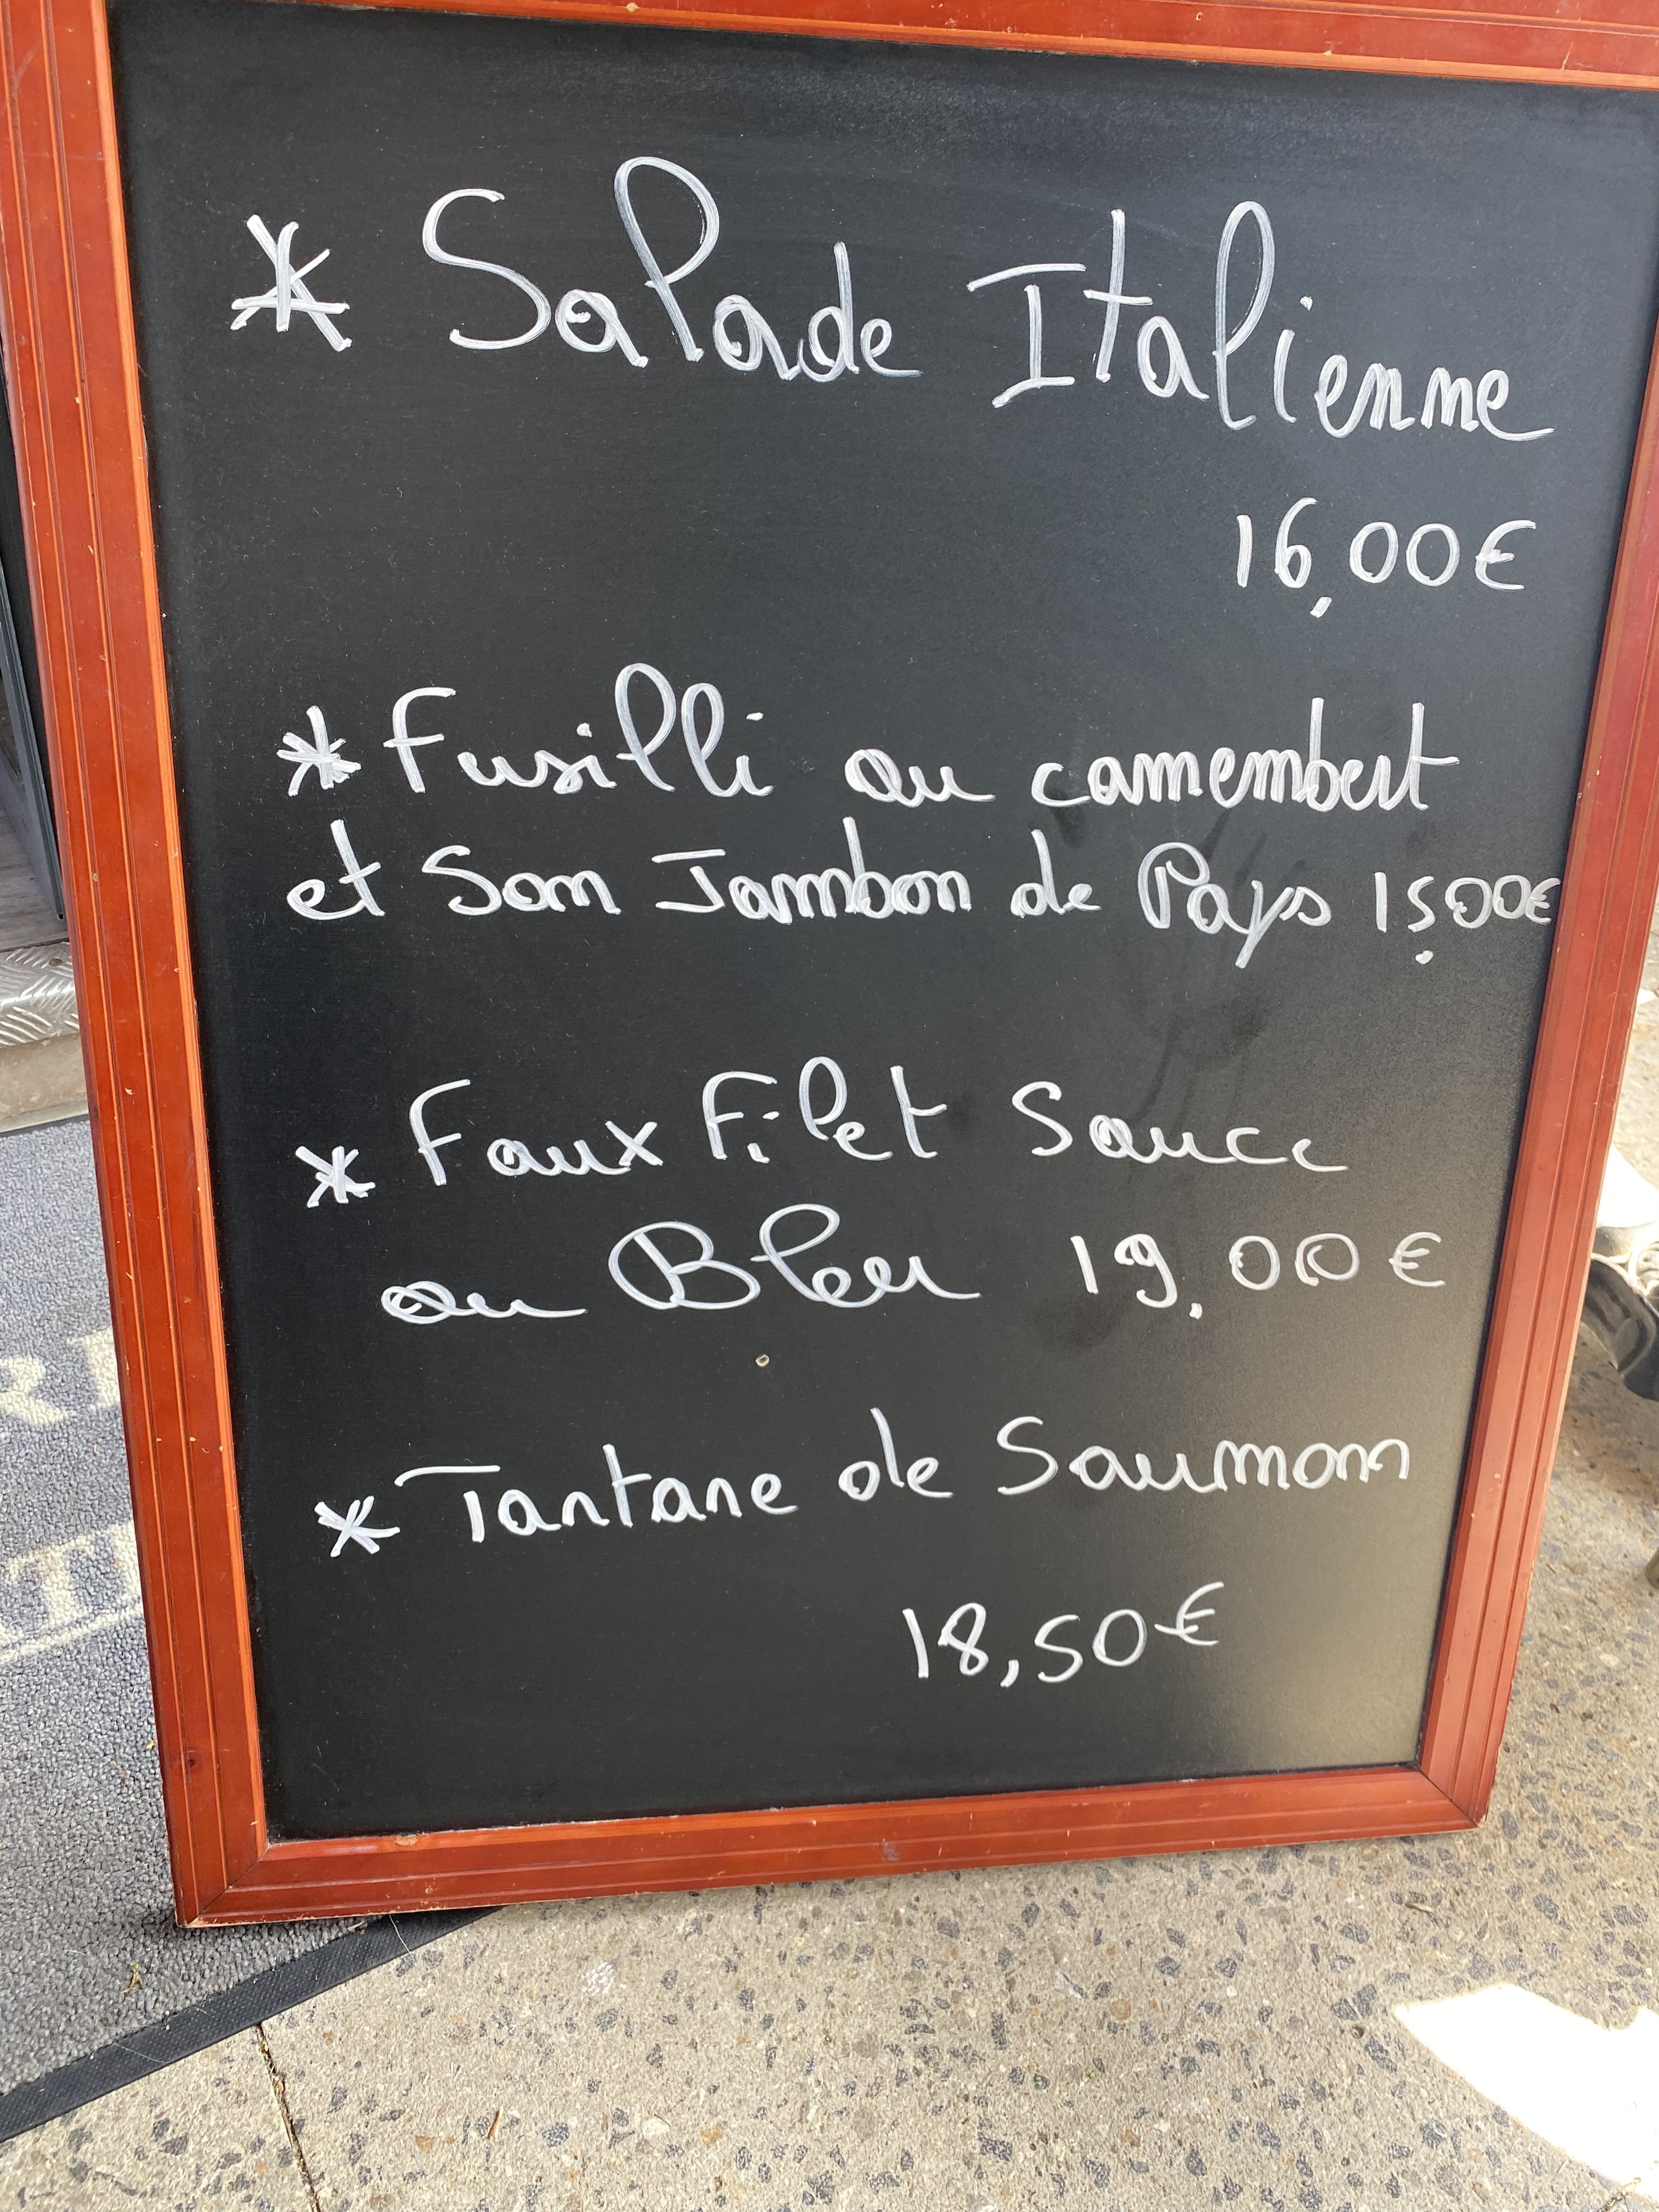 * Salade Italienne
16,00€
* Fusilli au camembert
et Son Jambon de Pays 15,00€
* Faux Filet Sauce
au Bleu 19,00€
* Tartare de Saumon
18,50€